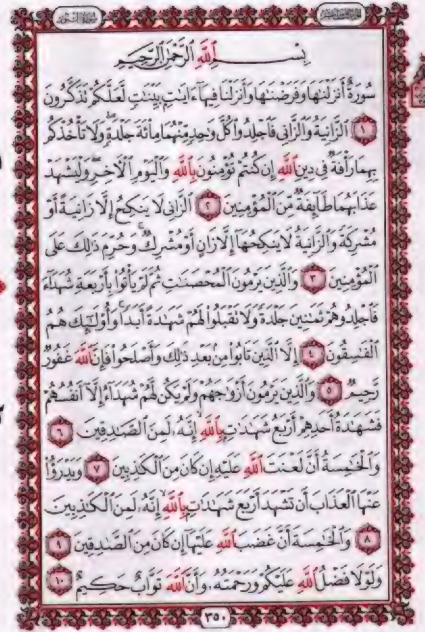 بِسْمِ ٱللَّهِ ٱلرَّحْمَـٰنِ ٱلرَّحِيمِ
سُورَةٌ أَنزَلْنَـٰهَا وَفَرَضْنَـٰهَا وَأَنزَلْنَا فِيهَآ ءَايَـٰتٍۭ بَيِّنَـٰتٍ لَّعَلَّكُمْ تَذَكَّرُونَ
١ ٱلزَّانِيَةُ وَٱلزَّانِى فَٱجْلِدُوا۟ كُلَّ وَٰحِدٍ مِّنْهُمَا مِا۟ئَةَ جَلْدَةٍ وَلَا تَأْخُذْكُم
بِهِمَا رَأْفَةٌ فِى دِينِ ٱللَّهِ إِن كُنتُمْ تُؤْمِنُونَ بِٱللَّهِ وَٱلْيَوْمِ ٱلْـَٔاخِرِ وَلْيَشْهَدْ
عَذَابَهُمَا طَآئِفَةٌ مِّنَ ٱلْمُؤْمِنِينَ ٢ ٱلزَّانِى لَا يَنكِحُ إِلَّا زَانِيَةً أَوْ
مُشْرِكَةً وَٱلزَّانِيَةُ لَا يَنكِحُهَآ إِلَّا زَانٍ أَوْ مُشْرِكٌ وَحُرِّمَ ذَٰلِكَ عَلَى
ٱلْمُؤْمِنِينَ ٣ وَٱلَّذِينَ يَرْمُونَ ٱلْمُحْصَنَـٰتِ ثُمَّ لَمْ يَأْتُوا۟ بِأَرْبَعَةِ شُهَدَآءَ
فَٱجْلِدُوهُمْ ثَمَـٰنِينَ جَلْدَةً وَلَا تَقْبَلُوا۟ لَهُمْ شَهَـٰدَةً أَبَدًا وَأُو۟لَـٰٓئِكَ هُمُ
ٱلْفَـٰسِقُونَ ٤ إِلَّا ٱلَّذِينَ تَابُوا۟ مِنۢ بَعْدِ ذَٰلِكَ وَأَصْلَحُوا۟ فَإِنَّ ٱللَّهَ غَفُورٌ
رَّحِيمٌ ٥ وَٱلَّذِينَ يَرْمُونَ أَزْوَٰجَهُمْ وَلَمْ يَكُن لَّهُمْ شُهَدَآءُ إِلَّآ أَنفُسُهُمْ
فَشَهَـٰدَةُ أَحَدِهِمْ أَرْبَعُ شَهَـٰدَٰتٍۭ بِٱللَّهِ إِنَّهُۥ لَمِنَ ٱلصَّـٰدِقِينَ ٦
وَٱلْخَـٰمِسَةُ أَنَّ لَعْنَتَ ٱللَّهِ عَلَيْهِ إِن كَانَ مِنَ ٱلْكَـٰذِبِينَ ٧ وَيَدْرَؤُا۟
عَنْهَا ٱلْعَذَابَ أَن تَشْهَدَ أَرْبَعَ شَهَـٰدَٰتٍۭ بِٱللَّهِ إِنَّهُۥ لَمِنَ ٱلْكَـٰذِبِينَ
٨ وَٱلْخَـٰمِسَةَ أَنَّ غَضَبَ ٱللَّهِ عَلَيْهَآ إِن كَانَ مِنَ ٱلصَّـٰدِقِينَ ٩
وَلَوْلَا فَضْلُ ٱللَّهِ عَلَيْكُمْ وَرَحْمَتُهُۥ وَأَنَّ ٱللَّهَ تَوَّابٌ حَكِيمٌ ١٠
٣٥٠